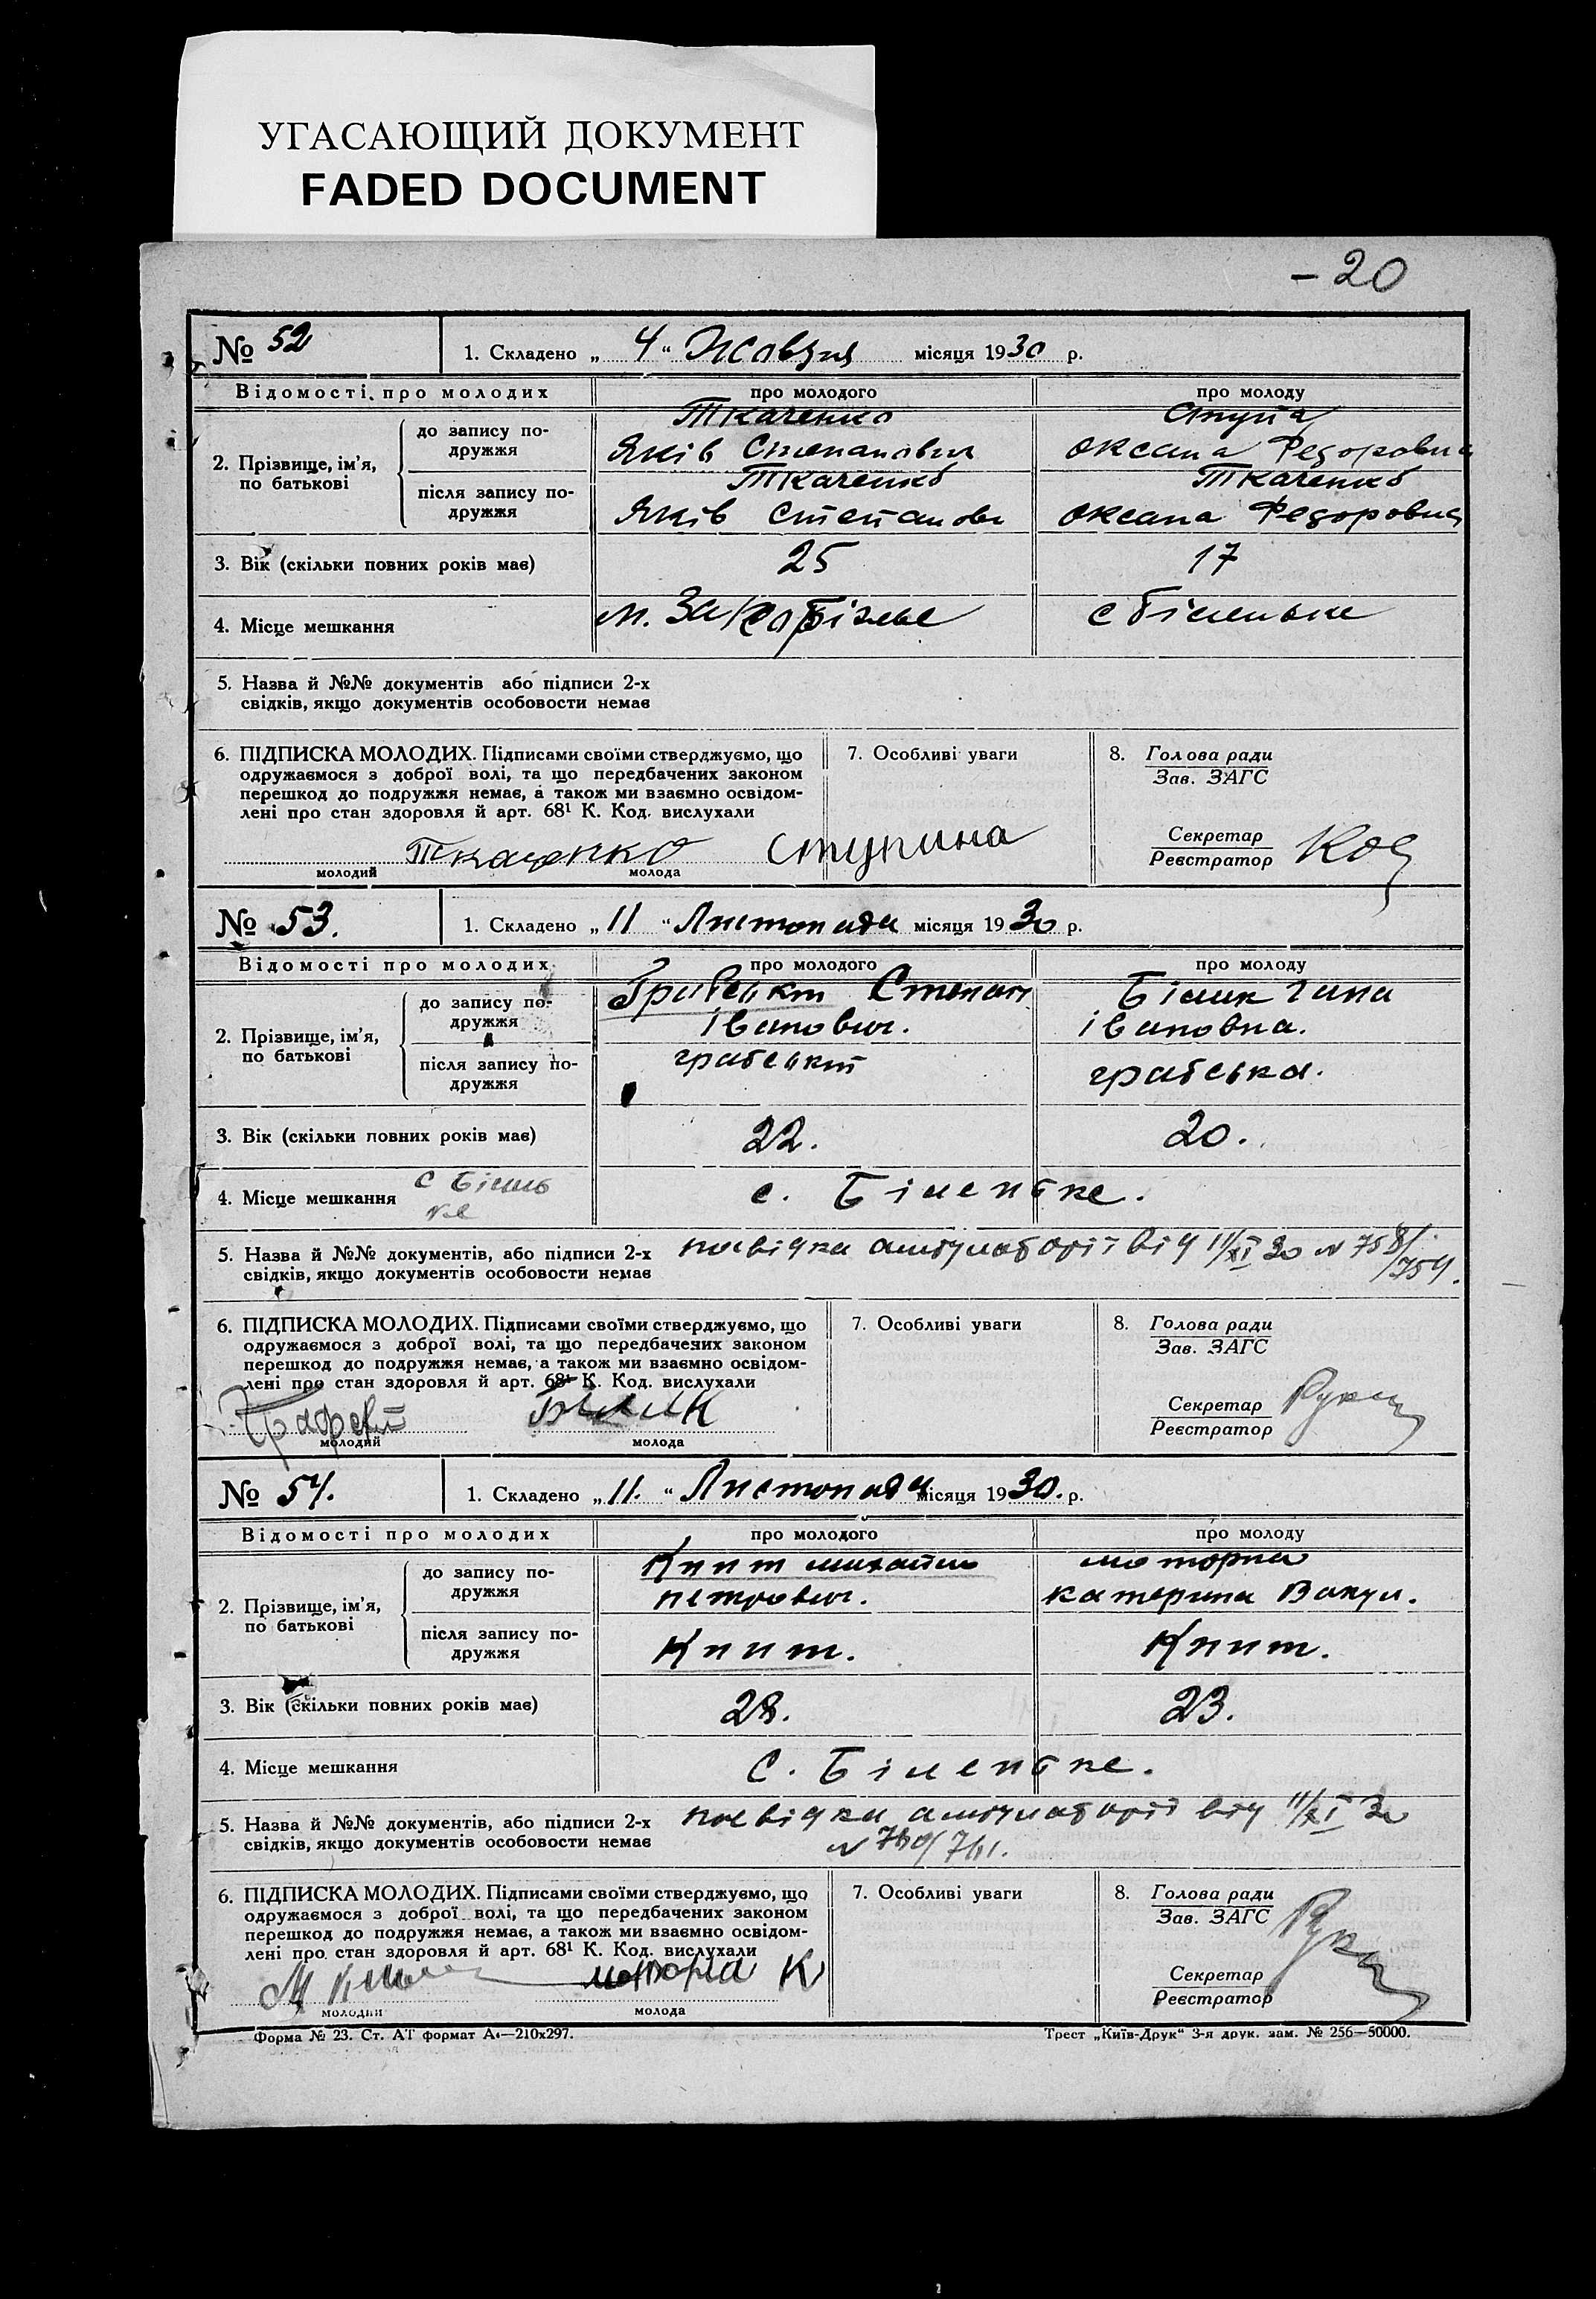 УГАСАЮЩИЙ ДОКУМЕНТ
FADED DOCUMENT
– 20
№ 52 1. Складено „ 4 “ Жовтня місяця 1930 р.
Відомості про молодих про молодого про молоду
2. Прізвище, ім'я, по батькові
до запису по-
дружжя
Ткаченко
Яків Степанович
Ступа
Оксана Федоровна
після запису по-
дружжя
Ткаченко
Яків Степанови
Ткаченко
Оксана Федоровна
3. Вік (скільки повних років має) 25 17
4. Місце мешкання м. с Біленьке
5. Назва й №№ документів або підписи 2-х
свідків, якщо документів особовости немає
6. ПІДПИСКА МОЛОДИХ. Підписами своїми стверджуємо, що
одружаємося з доброї волі, та що передбачених законом
перешкод до подружжя немає, а також ми взаємно освідом-
лені про стан здоровля й арт. 68¹ К. Код. вислухали
Ткаченко Ступина
молодий молода
7. Особливі уваги
8. Голова ради
Зав. ЗАГС
Секретар
Реєстратор
№ 53. 1. Складено „ 11 “ Листопада місяця 1930 р.
Відомості про молодих про молодого про молоду
2. Прізвище, ім'я, по батькові
до запису по-
дружжя
Степан
Іванович.
Білик
Івановна.
після запису по-
дружжя
грабський
грабська.
3. Вік (скільки повних років має) 22. 20.
4. Місце мешкання с. Біленьке.
5. Назва й №№ документів, або підписи 2-х
свідків, якщо документів особовости немає
посвідка амбулаторії від 11/XI 30 № 758/
/759.
6. ПІДПИСКА МОЛОДИХ. Підписами своїми стверджуємо, що
одружаємося з доброї волі, та що передбачених законом
перешкод до подружжя немає, а також ми взаємно освідом-
лені про стан здоровля й арт. 68¹ К. Код. вислухали
Билик
молодий молода
7. Особливі уваги
8. Голова ради
Зав. ЗАГС
Секретар
Реєстратор
№ 54. 1. Складено „ 11. “ Листопада місяця 1930. р.
Відомості про молодих про молодого про молоду
2. Прізвище, ім'я, по батькові
до запису по-
дружжя
Книш Михайло
Петрович.
Моторна
Катерина Вакул.
після запису по-
дружжя
Книш.
Книш.
3. Вік (скільки повних років має) 28. 23.
4. Місце мешкання С. Біленьке.
5. Назва й №№ документів, або підписи 2-х
свідків, якщо документів особовости немає
посвідка амбулаторії від 11/XI 30
№ 760/761.
6. ПІДПИСКА МОЛОДИХ. Підписами своїми стверджуємо, що
одружаємося з доброї волі, та що передбачених законом
перешкод до подружжя немає, а також ми взаємно освідом-
лені про стан здоровля й арт. 68¹ К. Код. вислухали
моторна К
молодий молода
7. Особливі уваги
8. Голова ради
Зав. ЗАГС
Секретар
Реєстратор
Форма № 23. Ст. АТ формат А₄—210x297.
Трест „Київ-Друк“ 3-я друк. зам. № 256—50000.